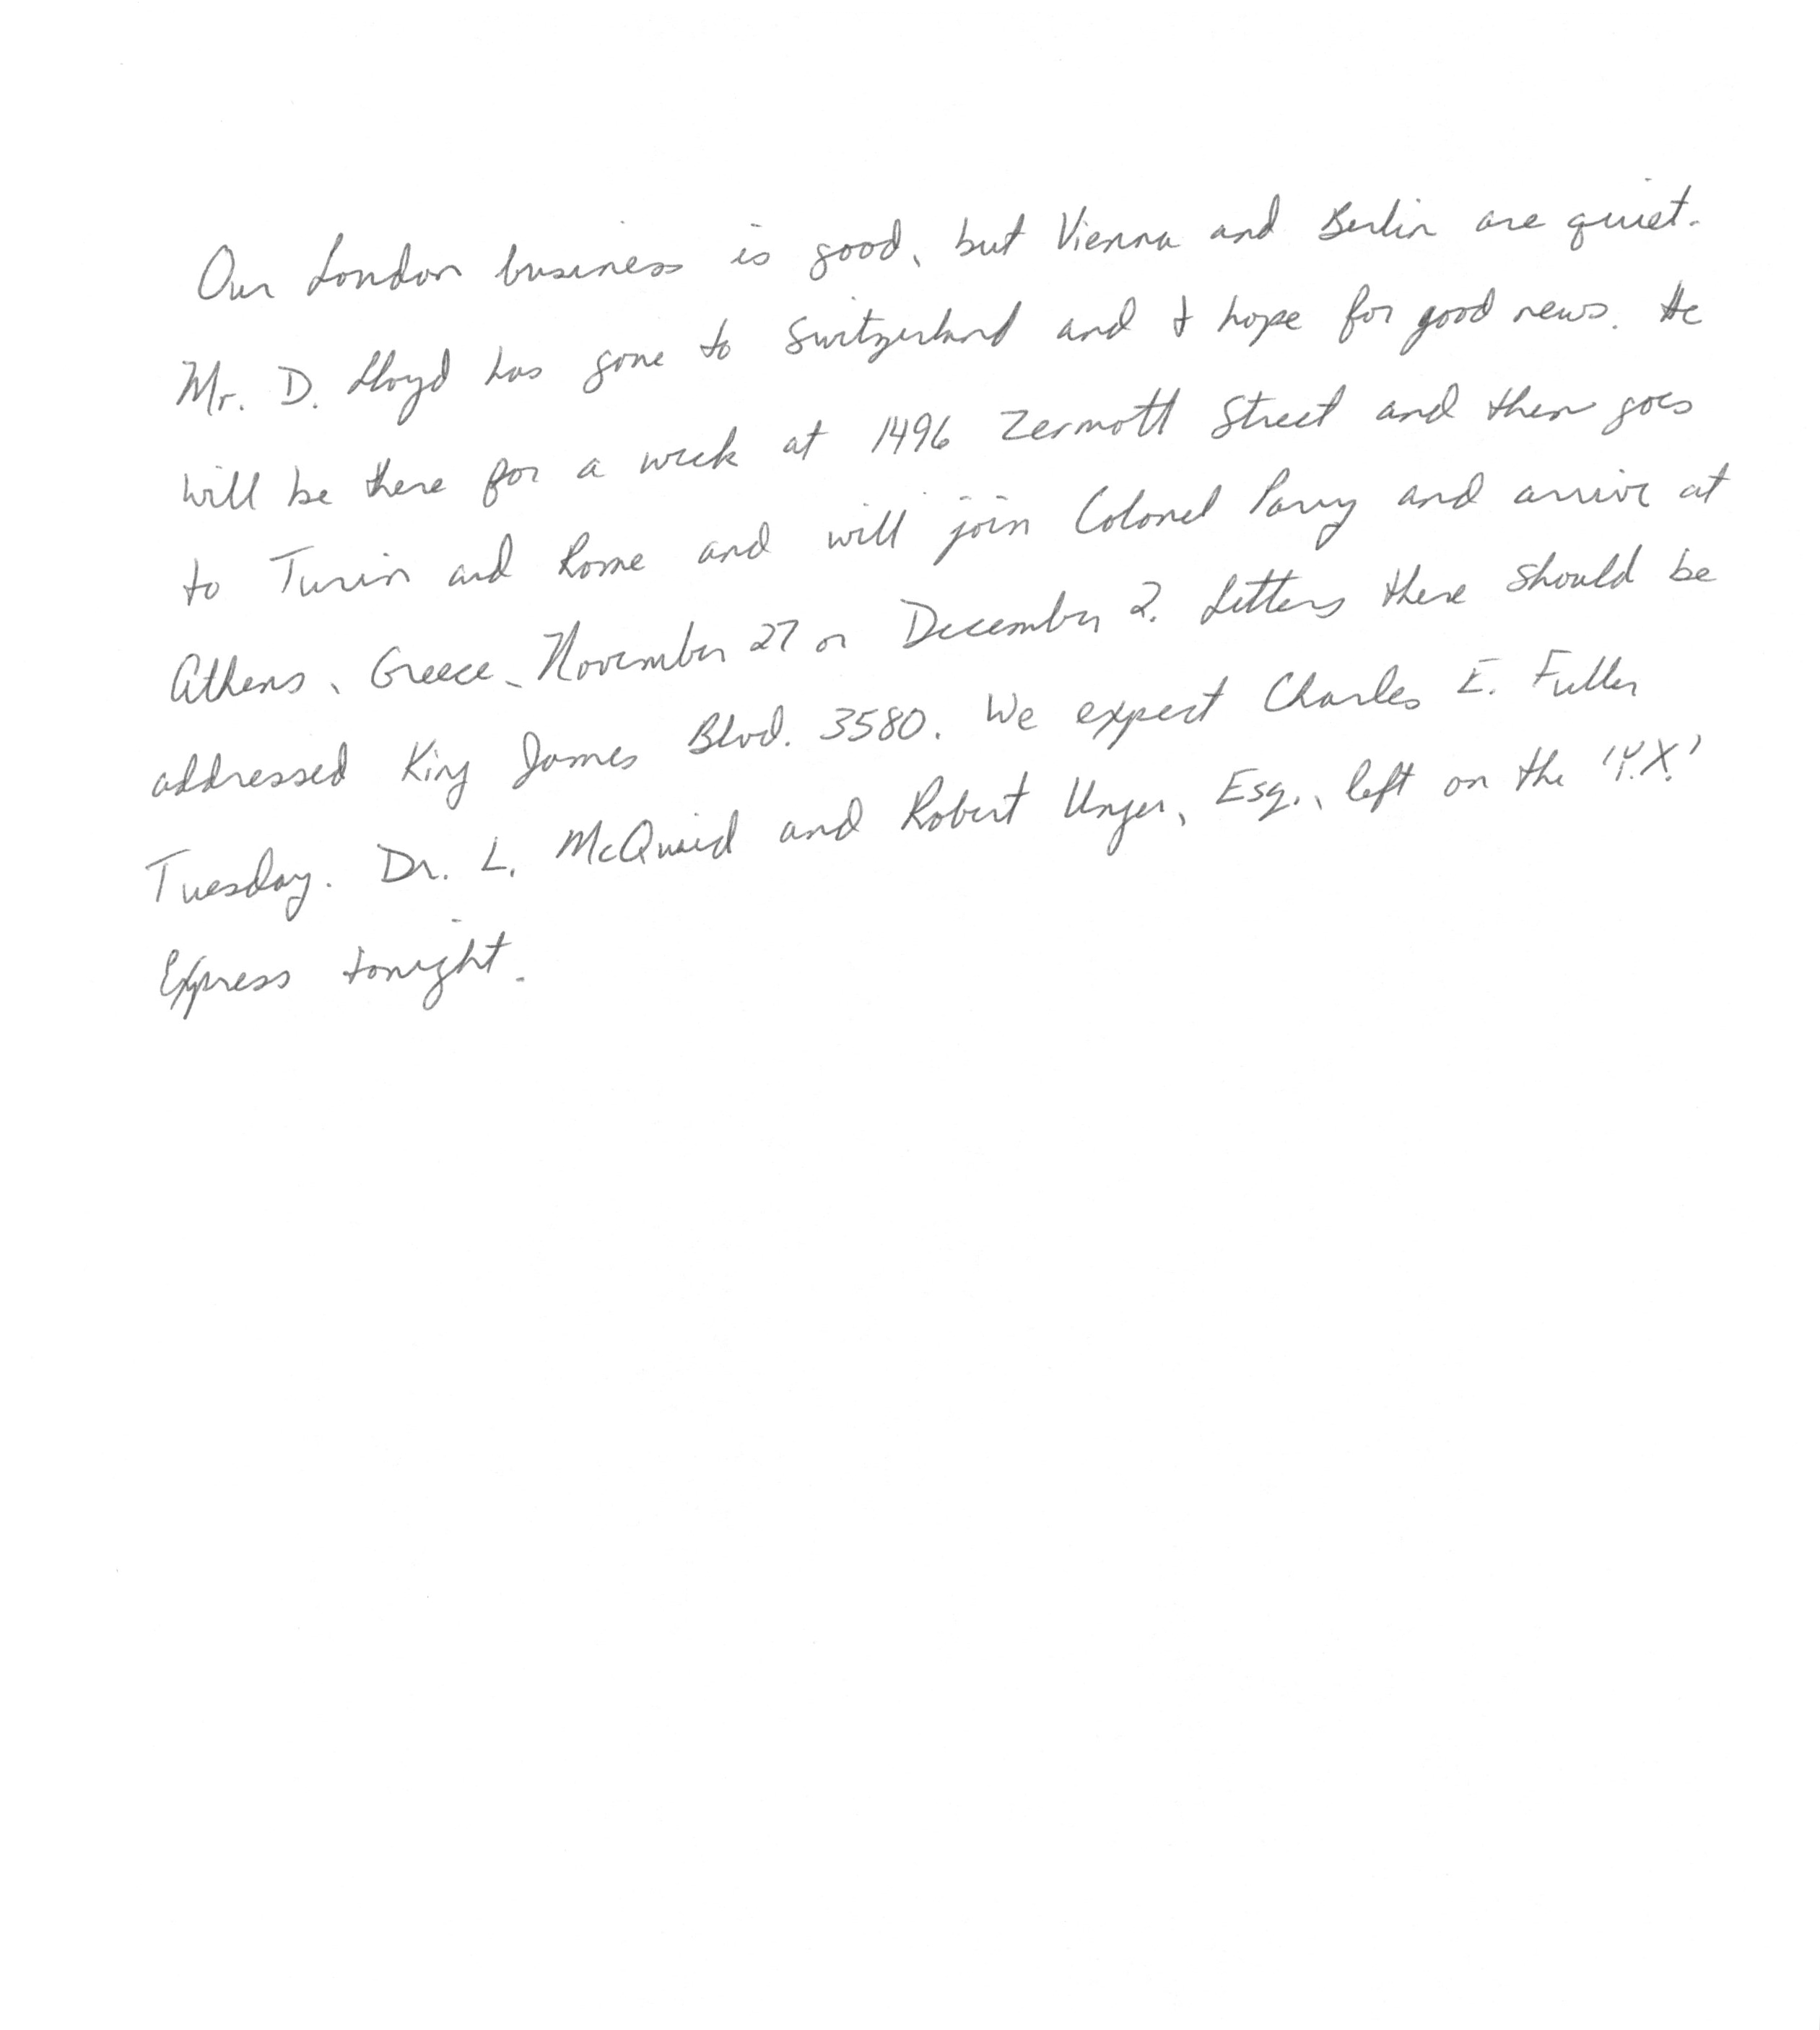 Our London business is good, but Vienna and Berlin are quiet.
Mr. D. Lloyd has gone to Switzerland and I hope for good news. He
will be there for a week at 1496 Zermott Street and then goes
to Turin and Rome and will join Colonel Parry and arrive at
Athens, Greece, November 27 or December 2. Letters there should be
addressed King James Blvd. 3580. We expect Charles E. Fuller
Tuesday. Dr. L. McQuaid and Robert Unger, Esq., left on the 'Y.X.'
Express tonight.